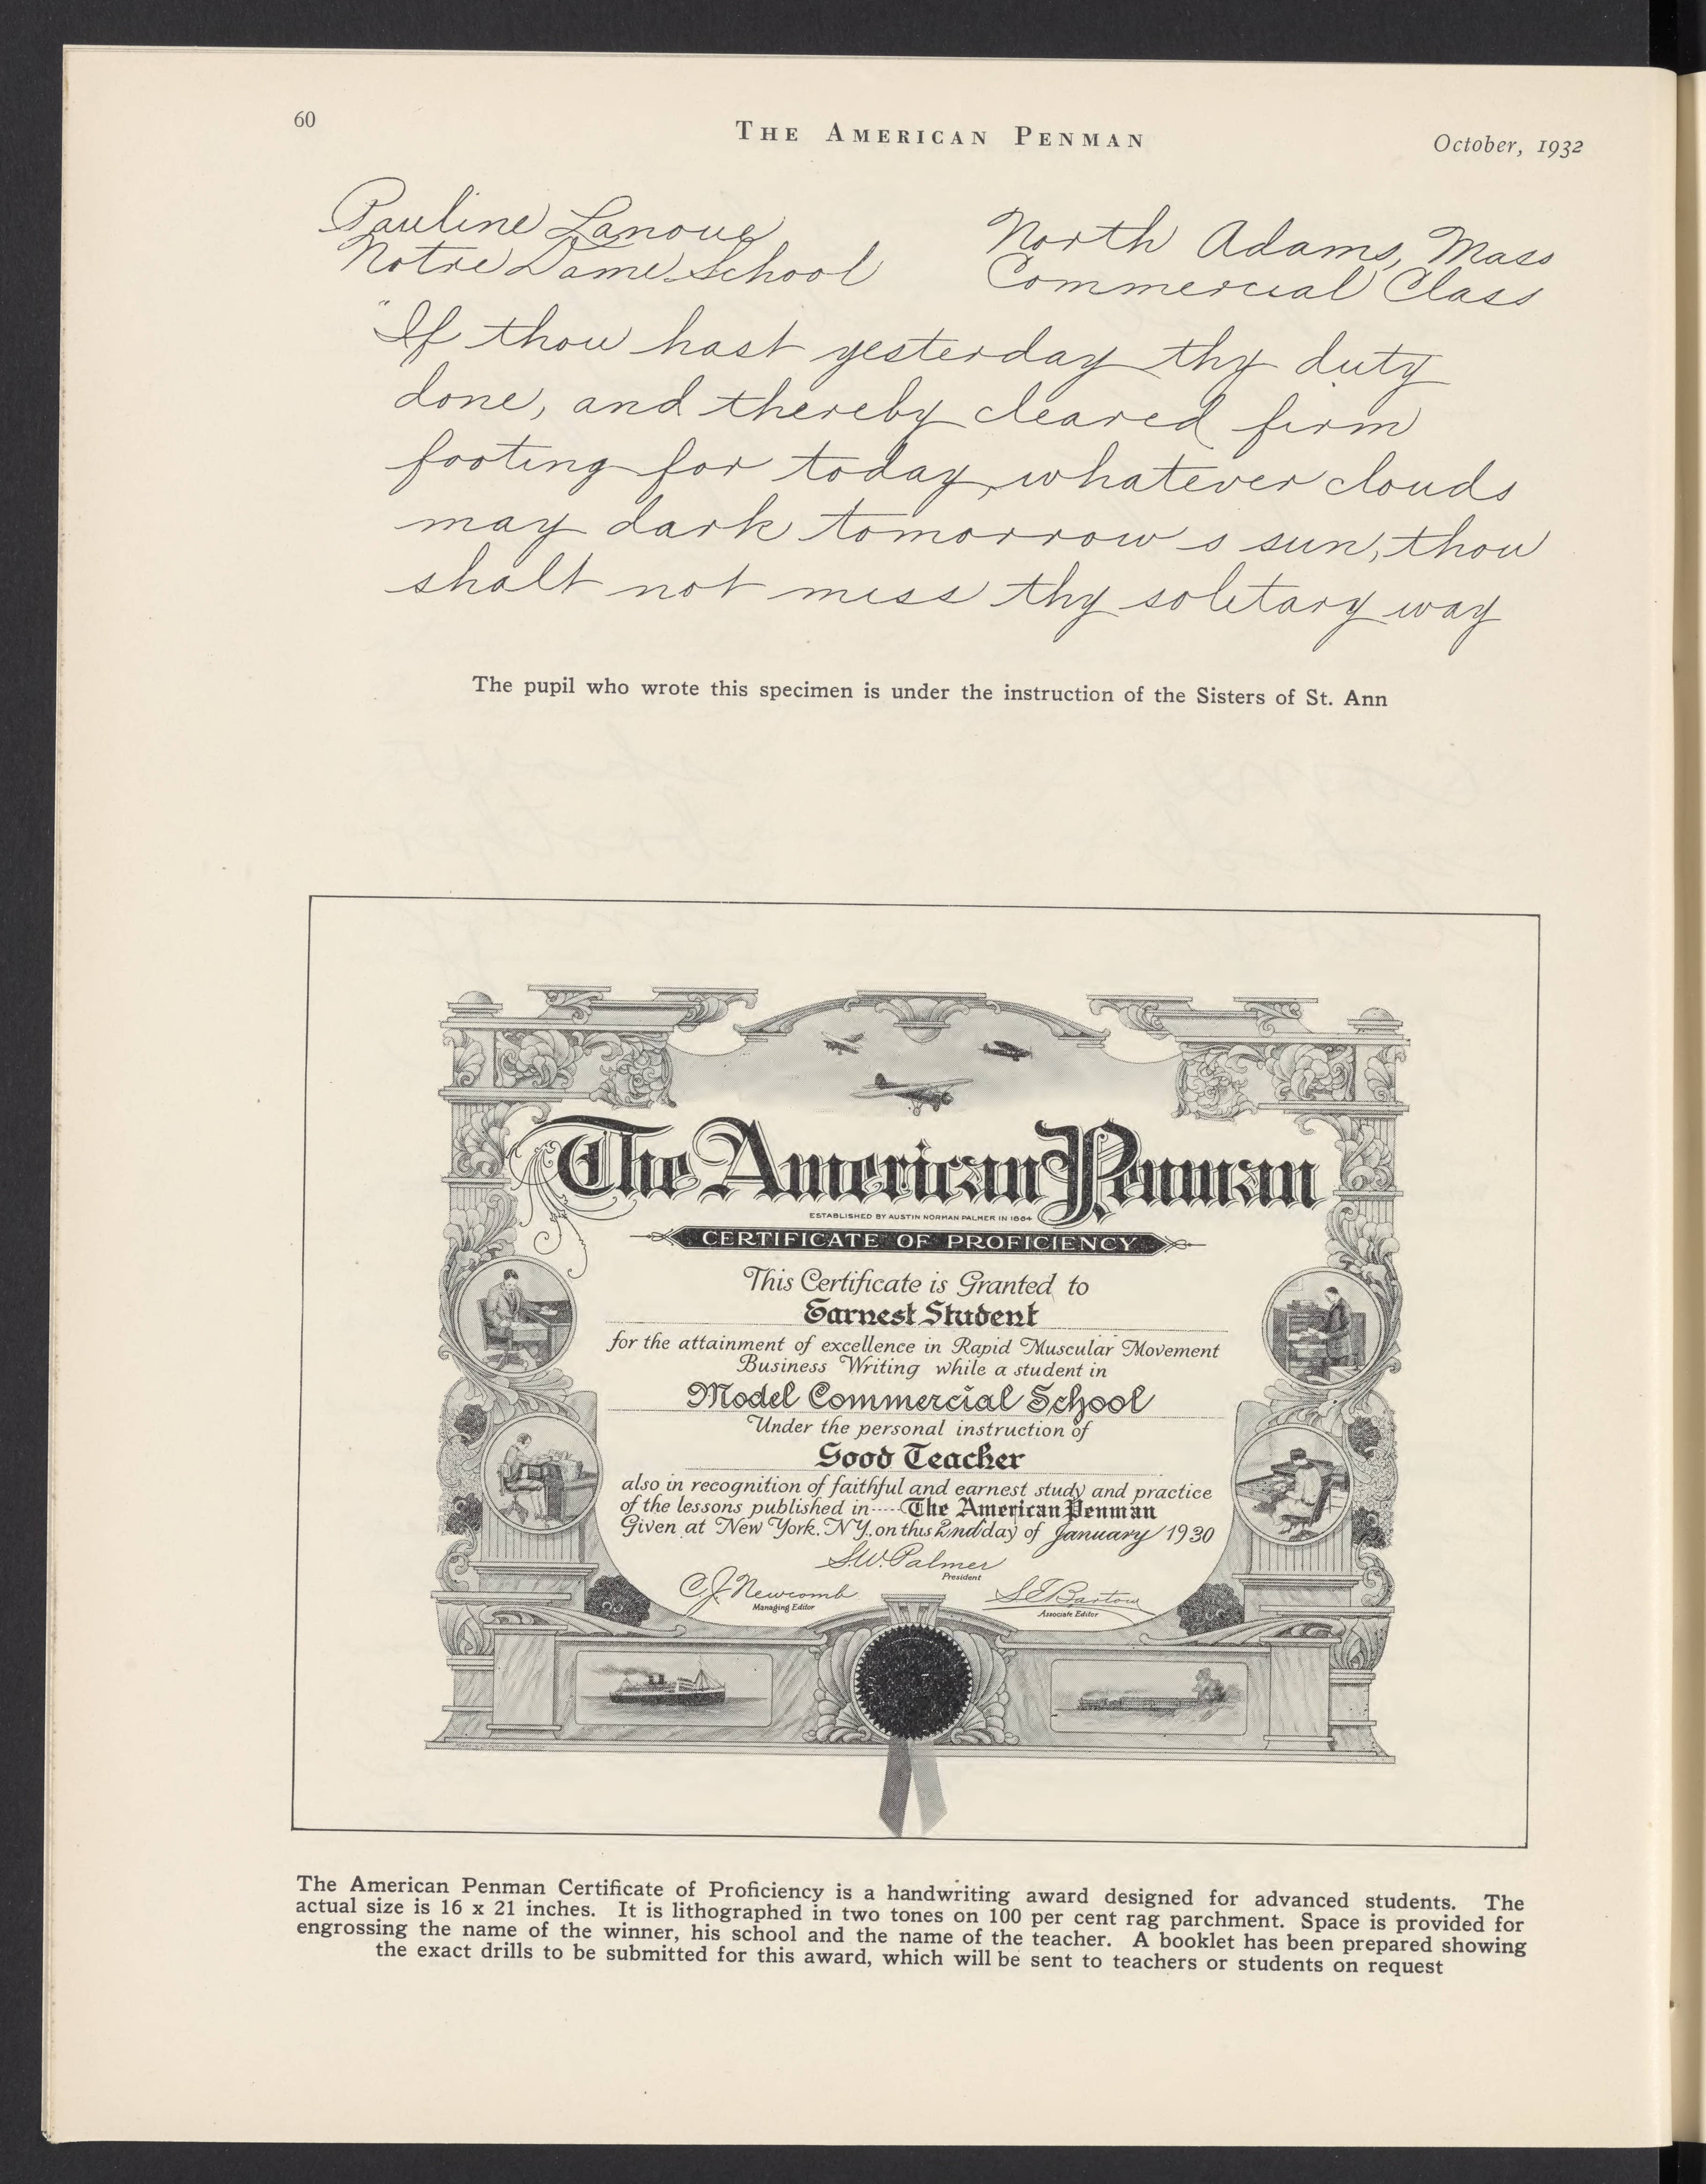 60
THE AMERICAN PENMAN
October, 1932
Pauline Lanoue
Notre Dame School
North Adams, Mass
Commercial Class
"If thou hast yesterday thy duty
done, and thereby cleared firm
footing for today, whatever clouds
may dark tomorrow s sun, thou
shalt not miss thy solitary way
The pupil who wrote this specimen is under the instruction of the Sisters of St. Ann
The American Penman
ESTABLISHED BY AUSTIN NORMAN PALMER IN 1884
CERTIFICATE OF PROFICIENCY
This Certificate is Granted to
Earnest Student
for the attainment of excellence in Rapid Muscular Movement
Business Writing while a student in
Model Commercial School
Under the personal instruction of
Good Teacher
also in recognition of faithful and earnest study and practice
of the lessons published in-----The American Penman
Given at New York, N.Y. on this 2nd day of January 1930
S.W. Palmer
President
C.J. Newcomb
Managing Editor
S.E. Bartow
Associate Editor
The American Penman Certificate of Proficiency is a handwriting award designed for advanced students. The
actual size is 16 x 21 inches. It is lithographed in two tones on 100 per cent rag parchment. Space is provided for
engrossing the name of the winner, his school and the name of the teacher. A booklet has been prepared showing
the exact drills to be submitted for this award, which will be sent to teachers or students on request